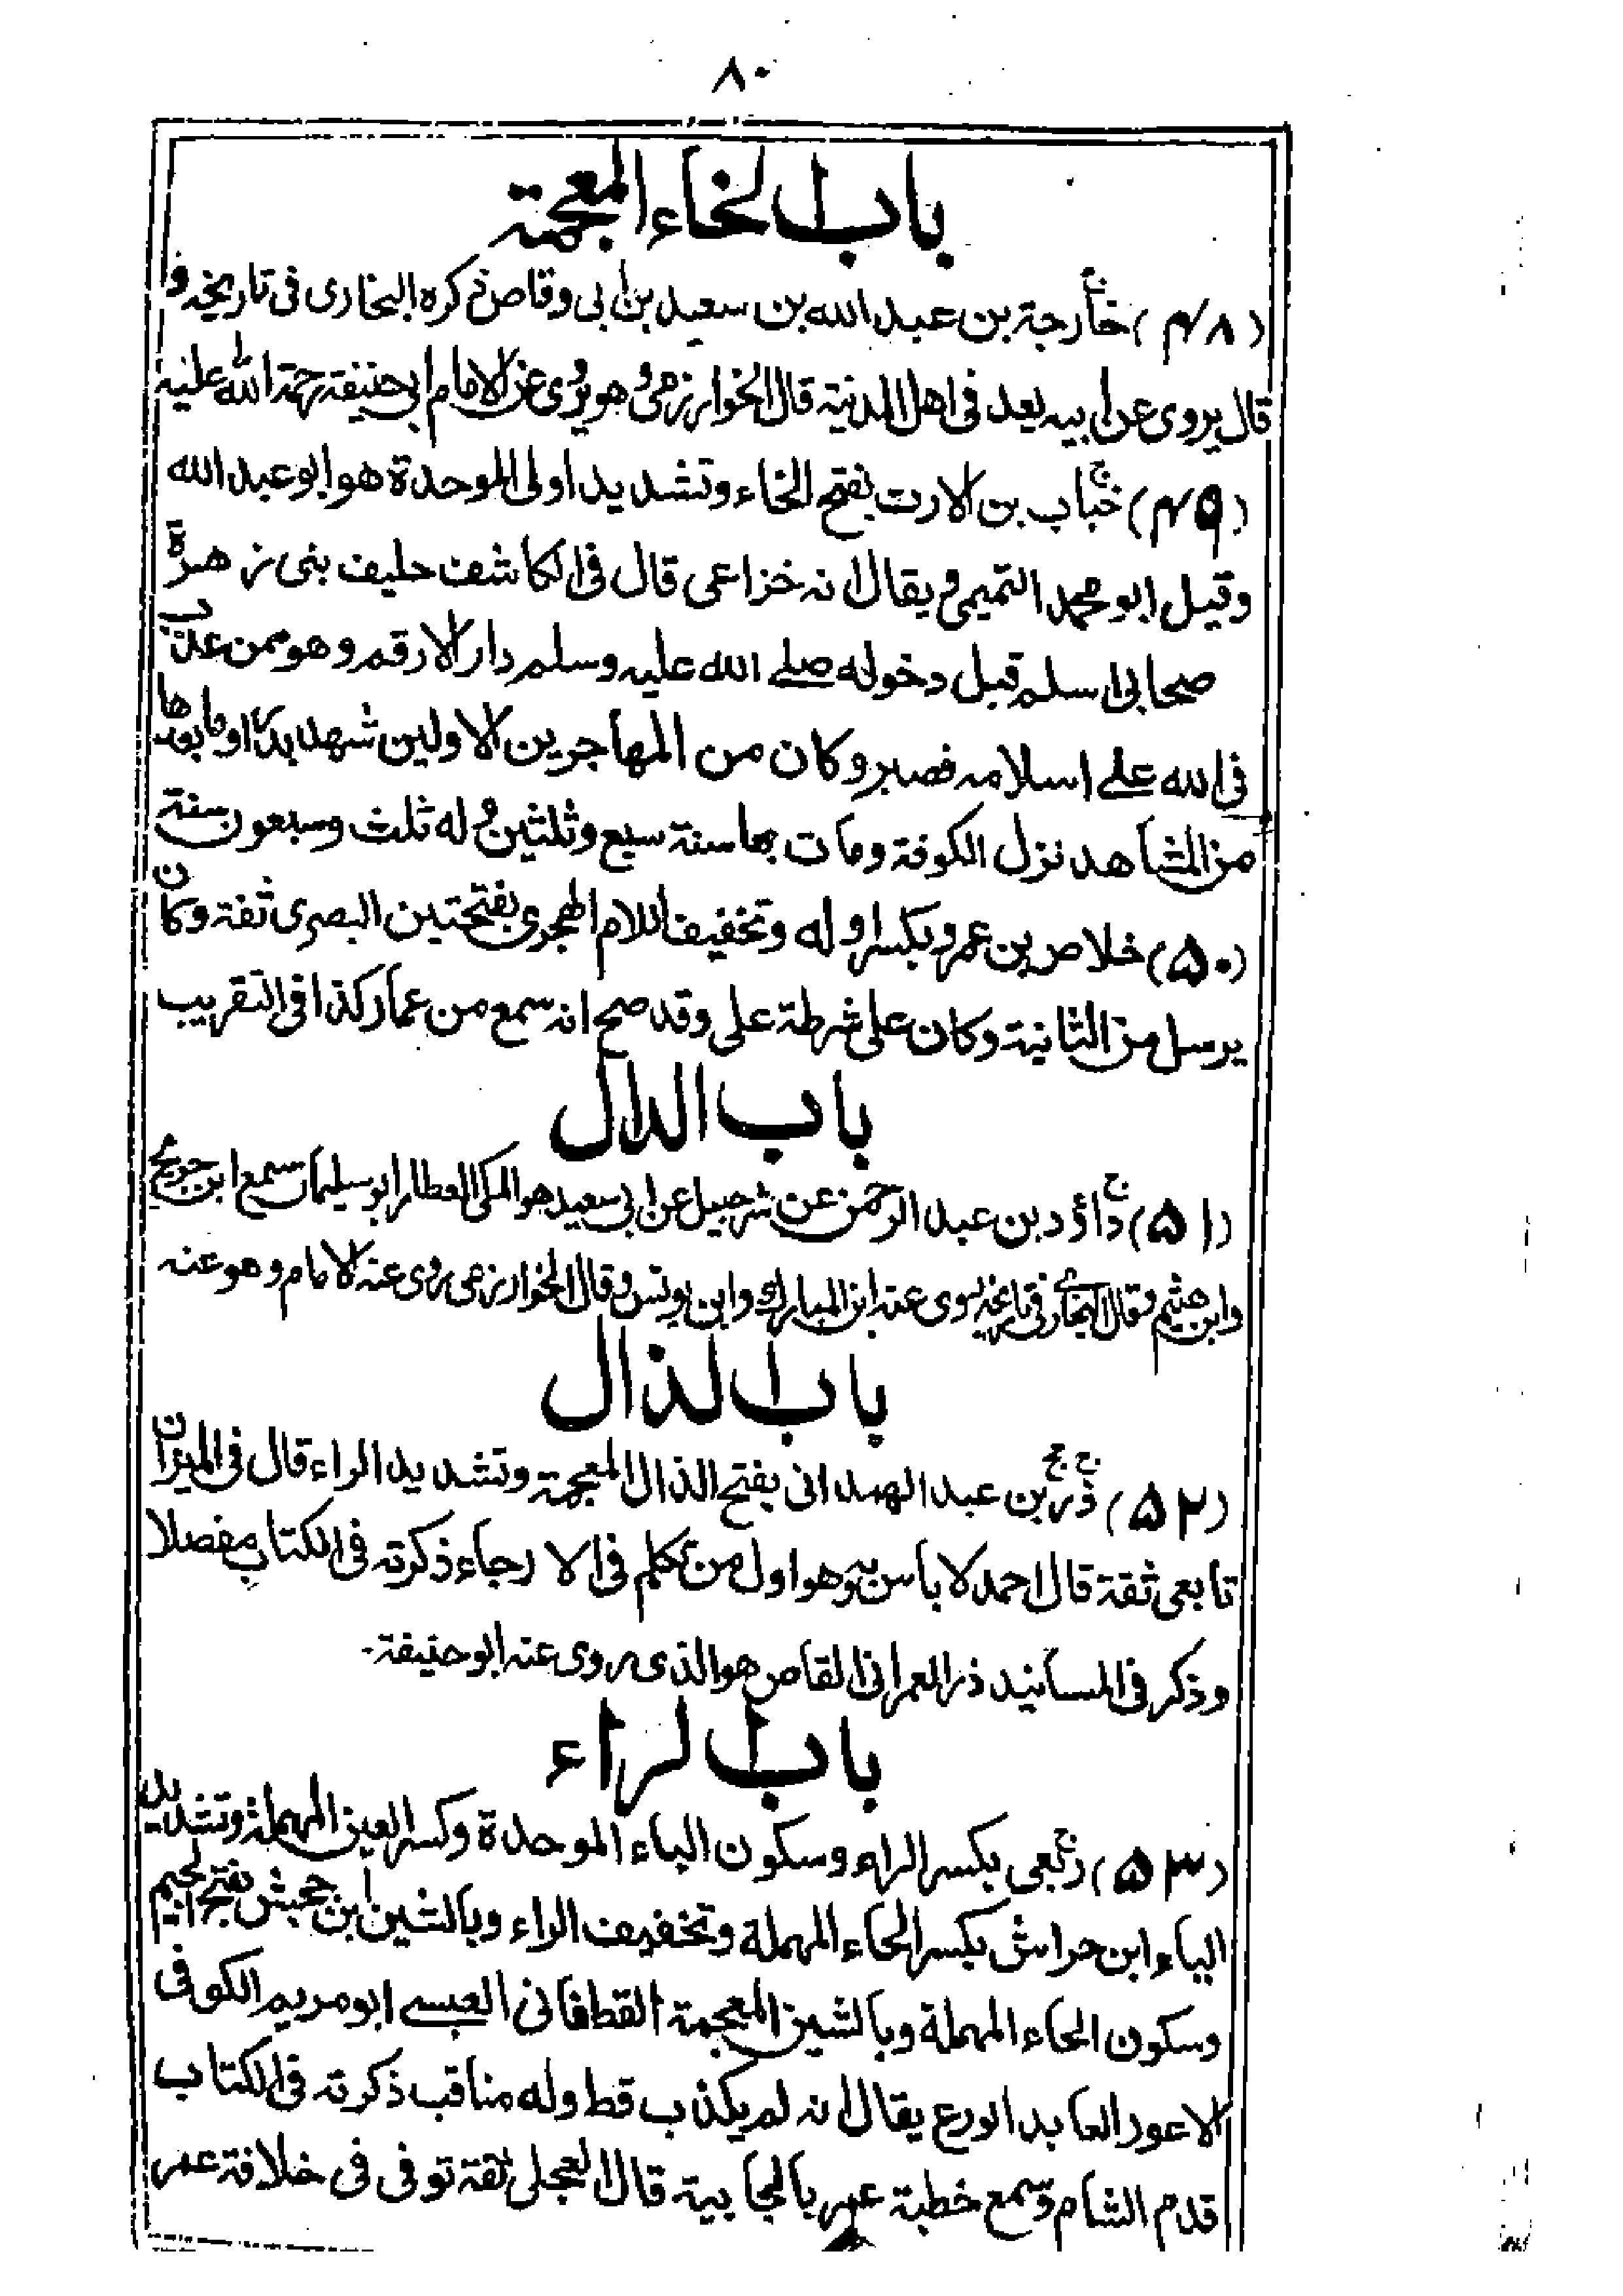 ٨٠
باب الخاء المعجمة
(٤٨) خارجة بن عبد الله بن سعيد بن ابى وقاص ذكره البخارى فى تاريخه و
قال يروى عن ابيه يعد فى اهل المدنية قال الخوارزمى وهو يروى عن الامام ابى حنيفة رحمة الله عليه
(٤٩) خباب بن الارت بفتح الخاء وتشديد اولى الموحدة هو ابو عبد الله
وقيل ابو محمد التميمى ويقال انه خزاعى قال فى الكاشف حليف بنى زهرة
صحابى اسلم قبل دخوله صلے الله عليه وسلم دار الارقم وهو ممن عذب
فى الله علے اسلامه فصبر وكان من المهاجرين الاولين شهد بدرا وما بعدها
من المشاهد نزل الكوفة ومات بها سنة سبع وثلثين وله ثلث وسبعون سنة
(٥٠) خلاص بن عمرو بكسر اوله وتخفيف اللام الهجرى بفتحتين البصرى ثقة وكان
يرسل من الثانية وكان على شرطة على وقد صح انه سمع من عمار كذا فى التقريب
باب الدال
(٥١) داؤد بن عبد الرحمن عن شرحبيل عن ابى سعيد هو المكى العطار ابو سليمان سمع ابن جريج
وابن خثيم وقال البخارى فى تاريخه يروى عنه ابن المبارك وابن يونس وقال الخوارزمى روى عنه الامام وهو عنه
باب الذال
(٥٢) ذر بن عبد الهمدانى بفتح الذال المعجمة وتشديد الراء قال فى الميزان
تابعى ثقة قال احمد لا باس به وهو اول من تكلم فى الارجاء ذكرته فى الكتاب مفصلا
وذكر فى المسانيد ذر العمرانى القاص هو الذى روى عنه ابو حنيفة-
باب الراء
(٥٣) ربعى بكسر الراء وسكون الباء الموحدة وكسر العين المهملة وتشديد
الياء ابن حراش بكسر الحاء المهملة وتخفيف الراء وبالشين ابن جحش بفتح الجيم
وسكون الحاء المهملة وبالشين المعجمة القطفانى العبسے ابو مريم الكوفى
الاعور العابد الورع يقال انه لم يكذب قط وله مناقب ذكرته فى الكتاب
قدم الشام وسمع خطبة عمر بالجابية قال العجلى ثقة توفى فى خلافة عمر